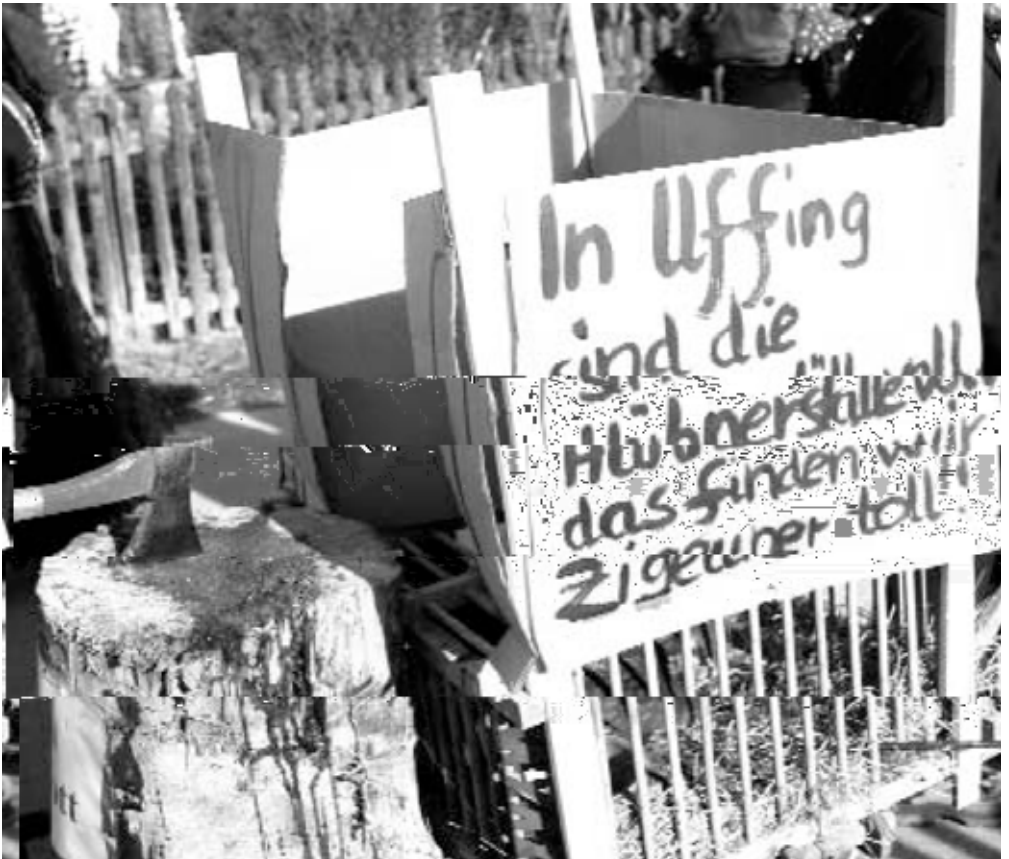 In Uffing
sind die
Hühnerställe voll,
das finden wir
Zigeuner toll!